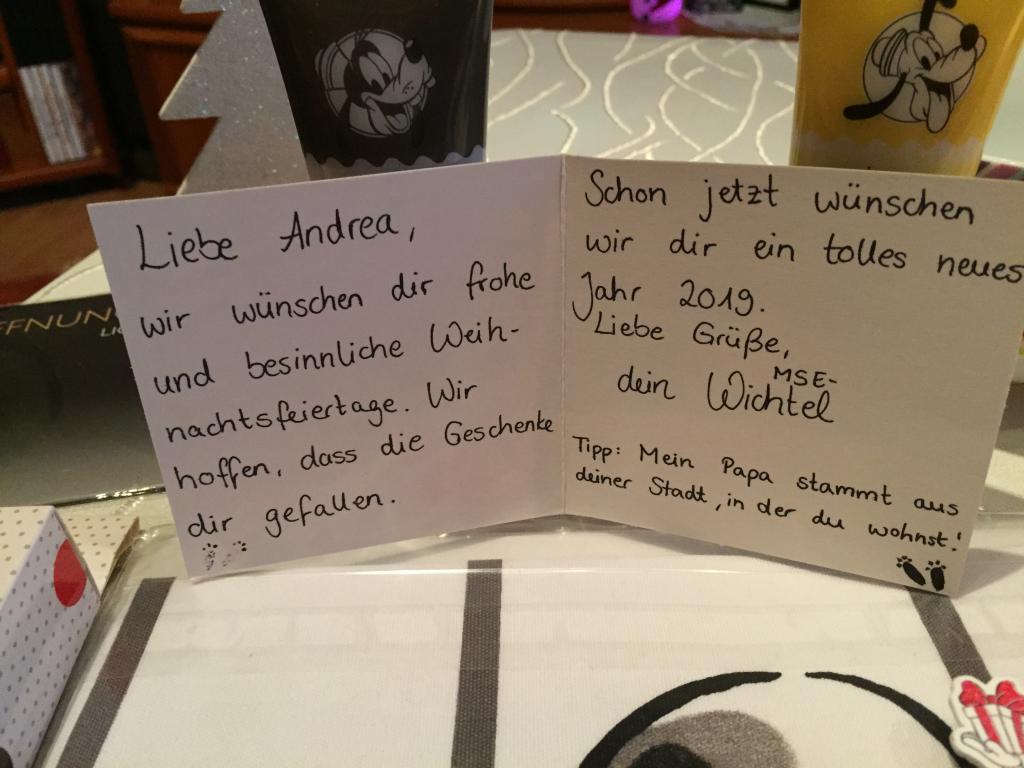 Liebe Andrea,
wir wünschen dir frohe
und besinnliche Weih-
nachtsfeiertage. Wir
hoffen, dass die Geschenke
dir gefallen.
Schon jetzt wünschen
wir dir ein tolles neues
Jahr 2019.
Liebe Grüße,
MSE-
dein Wichtel
Tipp: Mein Papa stammt aus
deiner Stadt, in der du wohnst!